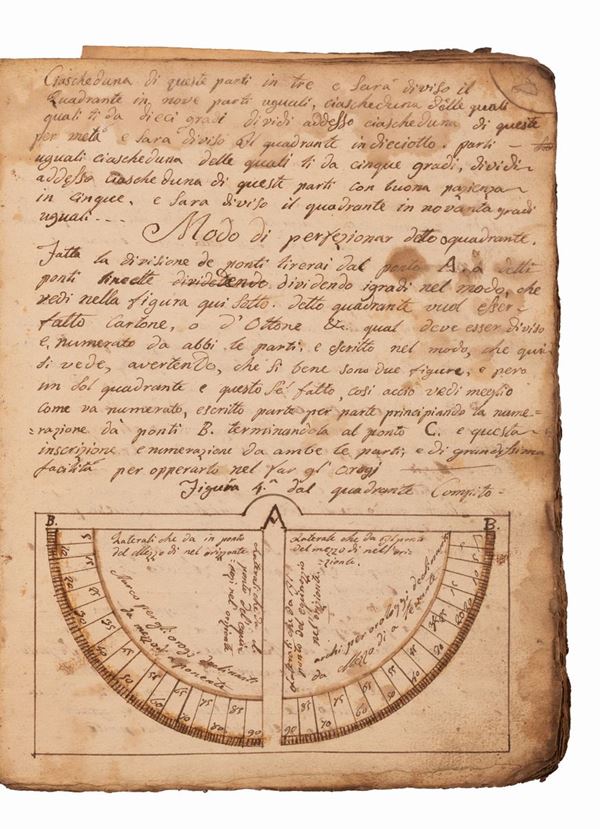 Ciascheduna di queste parti in tre e sarà diviso il
Quadrante in nove parti uguali, ciascheduna delle quali
quali ti da dieci gradi dividi addesso ciascheduna di queste
per metà e sarà diviso il quadrante in dieciotto. parti
uguali ciascheduna delle quali ti da cinque gradi, dividi
addesso ciascheduna di questi parti con buona pazienza
in cinque. e sara diviso il quadrante in novanta gradi
uguali...
Modo di perfezionar detto quadrante.
Fatta la divisione de ponti tirerai dal ponto A. a detti
ponti lineette dividendo igradi nel modo, che
vedi nella figura qui sotto. detto quadrante vuol esser
fatto Cartone, o d'Ottone &c. qual deve esser diviso
e, numerato da abbi le parti, e escritto nel modo, che qui
si vede, avertendo, che si bene sono due figure, e pero
un sol quadrante e questo fatto, cosi acciò vedi meglio
come va numerato, escritto parte per parte principiando la nume=
=razione da ponti B. terminandola al ponto C. e questa
inscrizione e numerazione da ambe le parti, e di grandissima
facilità per opperarlo nel far gl'orogi
Figura 4.a dal quadrante Compito
B. A B.
Laterali che da in ponto
del Mezzo di nel orizonte
Laterale che da il ponto
del mezzo di nell'ori=
zonte.
Laterali che da il
ponto del equi
nel orizonte
Laterali che da il
ponto del equinozio
nel orizonte
per gl'orogi declinanti
da Mezzo ponente
archi per orologgi declinanti
da Mezzo di a levante
5 10 20 35 55 60 65 70 75 80 85 90
90 85 80 75 70 65 60 55 35 25 20 15 5